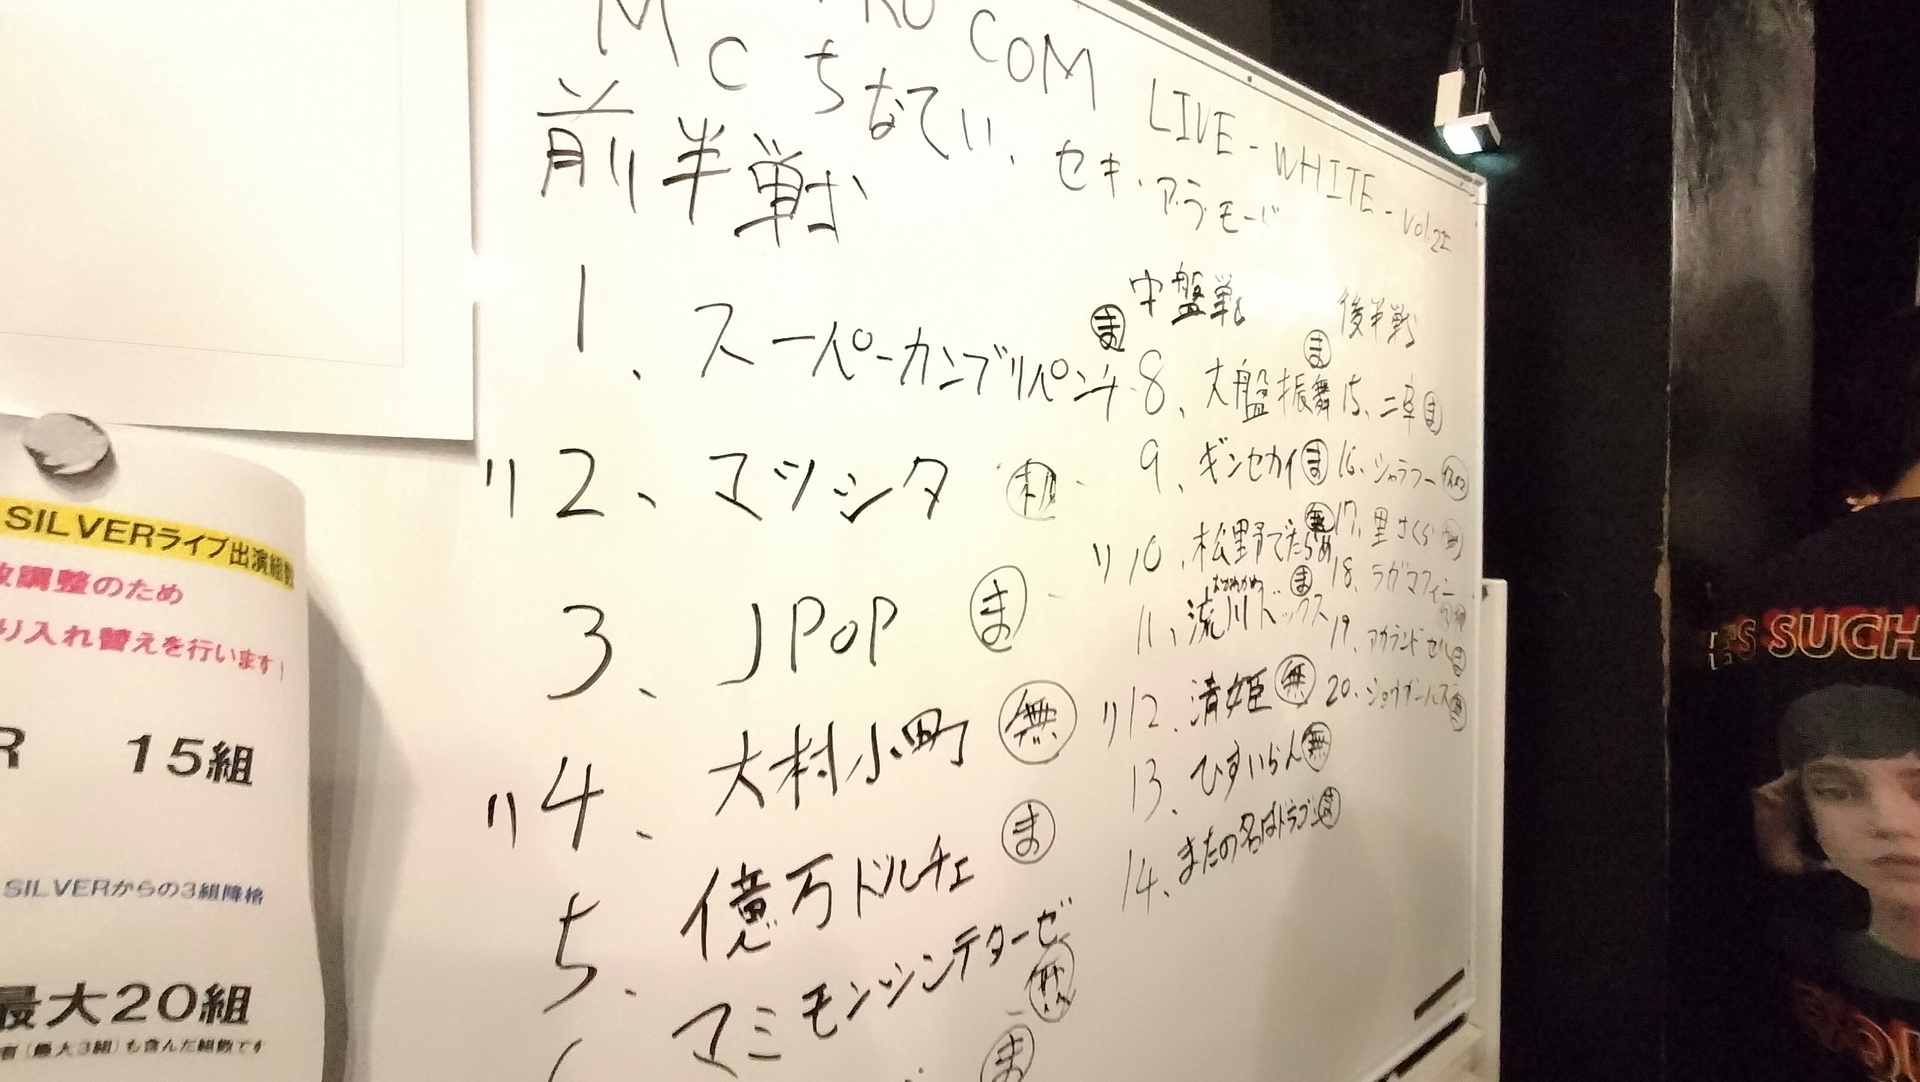 COM LIVE-WHITE-vol.22
MC ちなてい、セキ・アラモード
前半戦
1、スーパーカンブリパンチ ま
リ2、マツシタ
3、JPOP ま
リ4、大村小町 無
5、億万ドルチェ ま
マミモンシンデターゼ 無
ま
中盤戦
8、大盤振舞 ま
9、ギンセカイ ま
リ10、松野でたらめ 無
11、流川ドックス ま
リ12、清姫 無
13、ひすいらん 無
14、またの名はドラゴン ま
後半戦
15、二卓 ま
16、シャラフー
17、里さくら
18、ラガマフィン
19、アカランドセル ま
20、ショウガールズ
SILVERライブ出演組数
調整のため
り入れ替えを行います!
R 15組
SILVERからの3組降格
最大20組
(最大3組)も含んだ組数です
SUCH